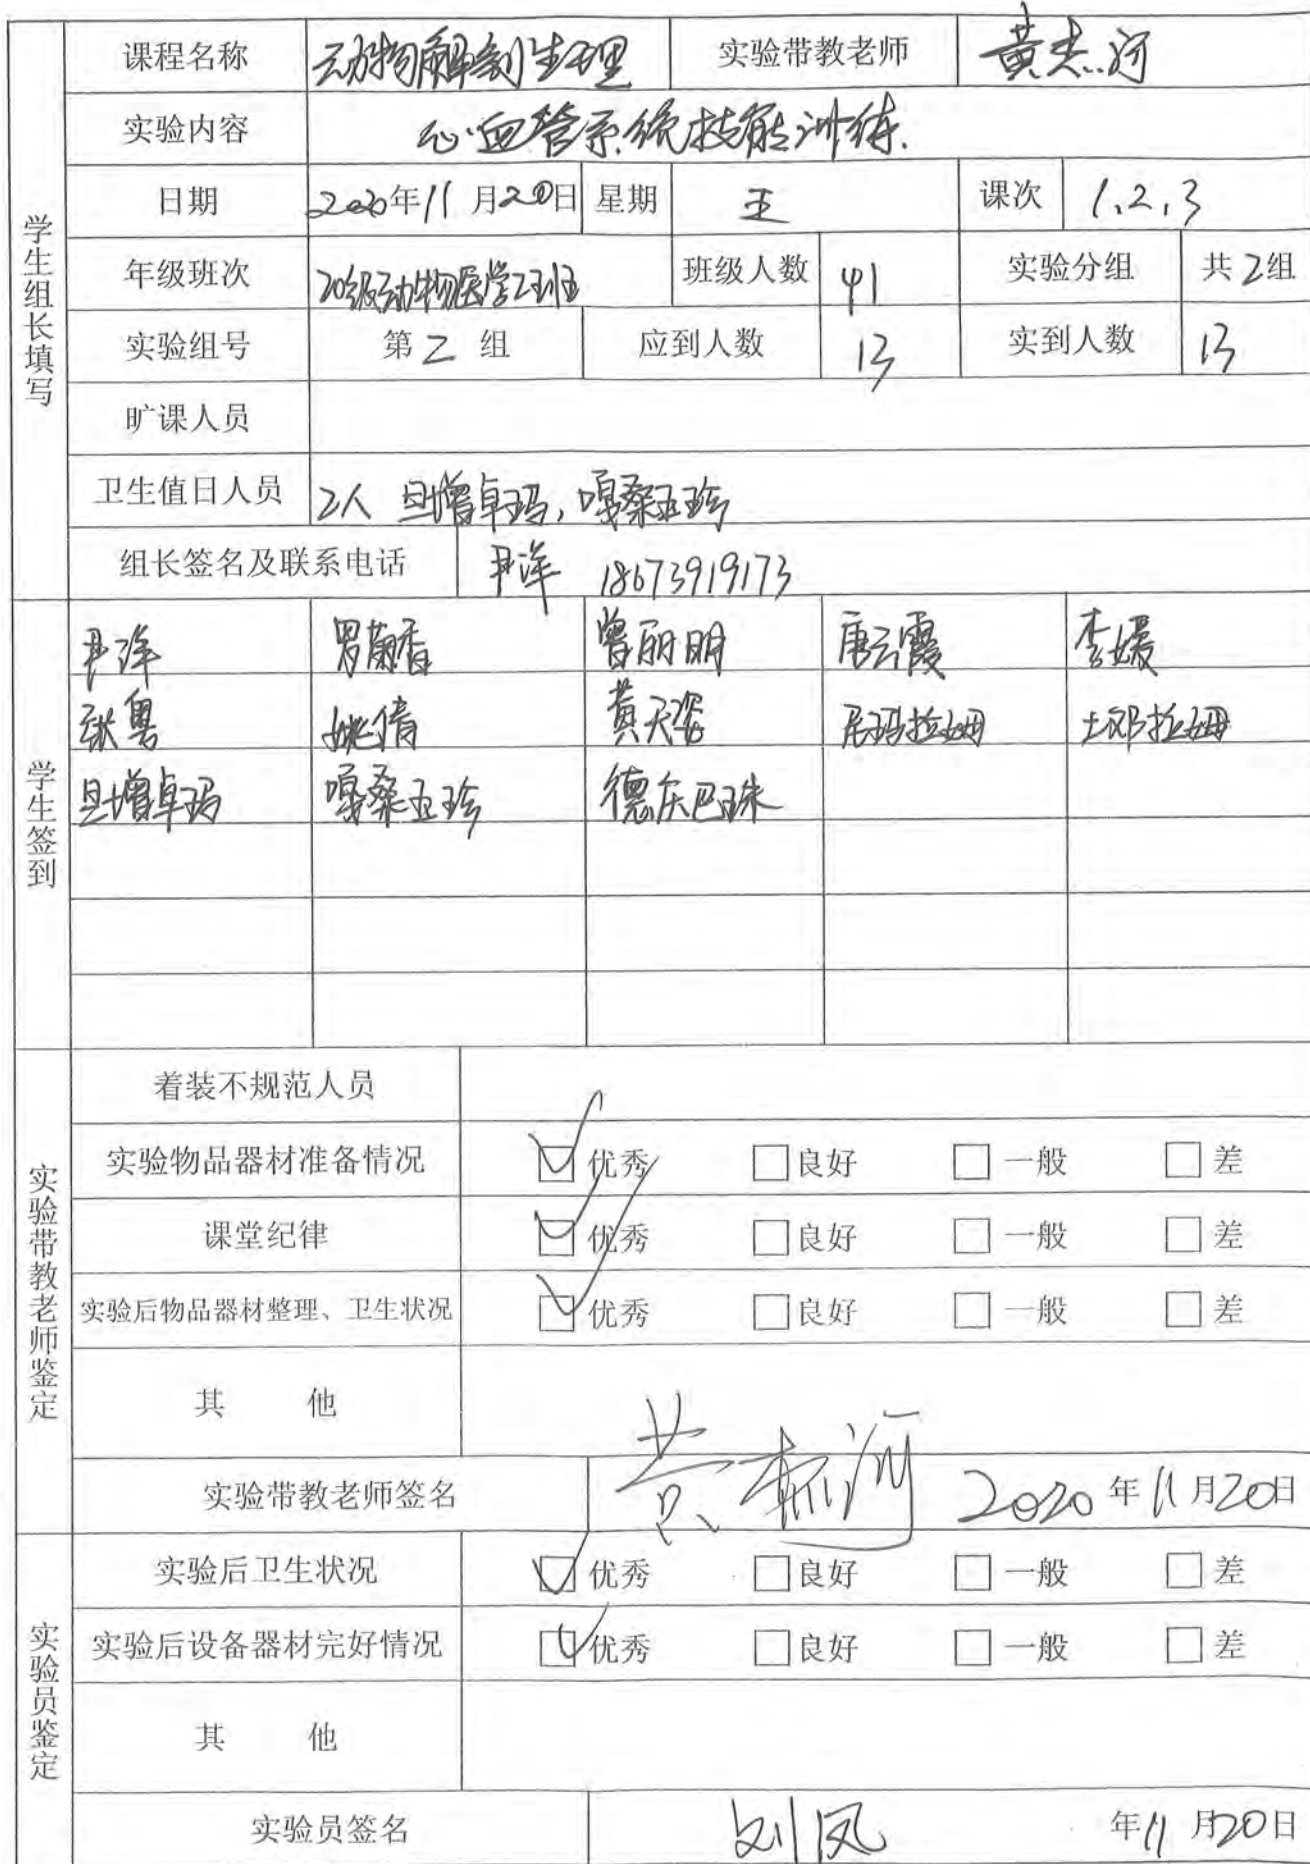 学生组长填写
课程名称 动物解剖生理 实验带教老师 黄杰河
实验内容 心血管系统技能训练.
日期 2020年11月20日 星期 五 课次 1.2.3
年级班次 20级动物医学2班 班级人数 41 实验分组 共2组
实验组号 第2组 应到人数 13 实到人数 13
旷课人员
卫生值日人员 2人 旦增卓玛,嘎桑玉珍
组长签名及联系电话 尹洋 18673919173
学生签到
尹洋 罗菊香 曾丽明 唐云霞 李媛
张粤 姚倩 黄天姿 尼玛拉姆 土邓拉姆
旦增卓玛 嘎桑玉珍 德庆巴珠
实验带教老师鉴定
着装不规范人员
实验物品器材准备情况 ☑优秀 □良好 □一般 □差
课堂纪律 ☑优秀 □良好 □一般 □差
实验后物品器材整理、卫生状况 ☑优秀 □良好 □一般 □差
其 他
实验带教老师签名 黄 河 2020年11月20日
实验员鉴定
实验后卫生状况 ☑优秀 □良好 □一般 □差
实验后设备器材完好情况 ☑优秀 □良好 □一般 □差
其 他
实验员签名 刘凤 年11月20日